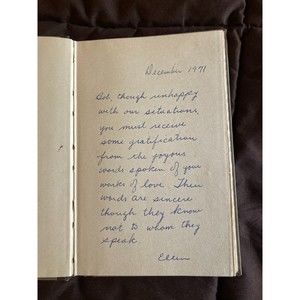 December 1971
Bob, though unhappy
with our situations,
you must receive
some gratification
from the joyous
words spoken of your
works of love. Their
words are sincere
though they know
not to whom they
speak.
Ellen